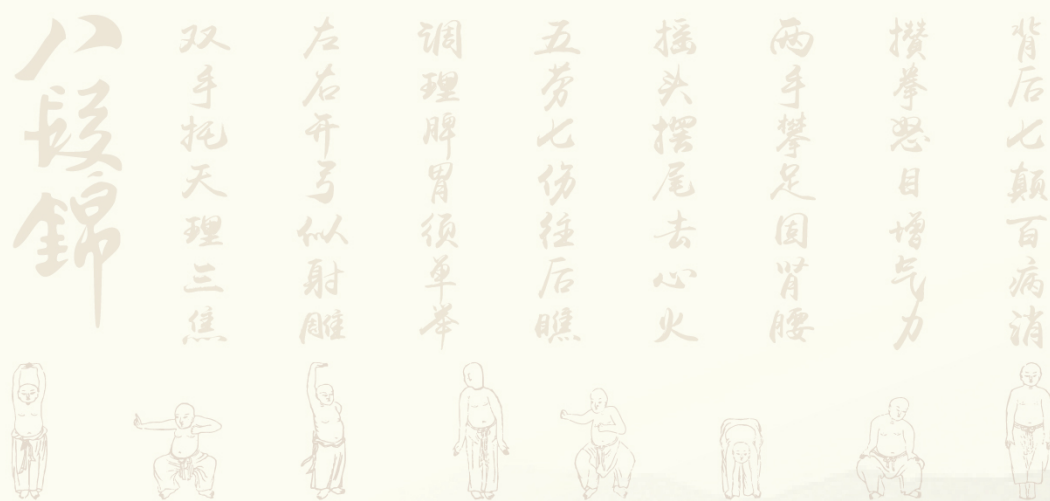 八段錦
双手托天理三焦
左右开弓似射雕
调理脾胃须单举
五劳七伤往后瞧
摇头摆尾去心火
两手攀足固肾腰
攒拳怒目增气力
背后七颠百病消